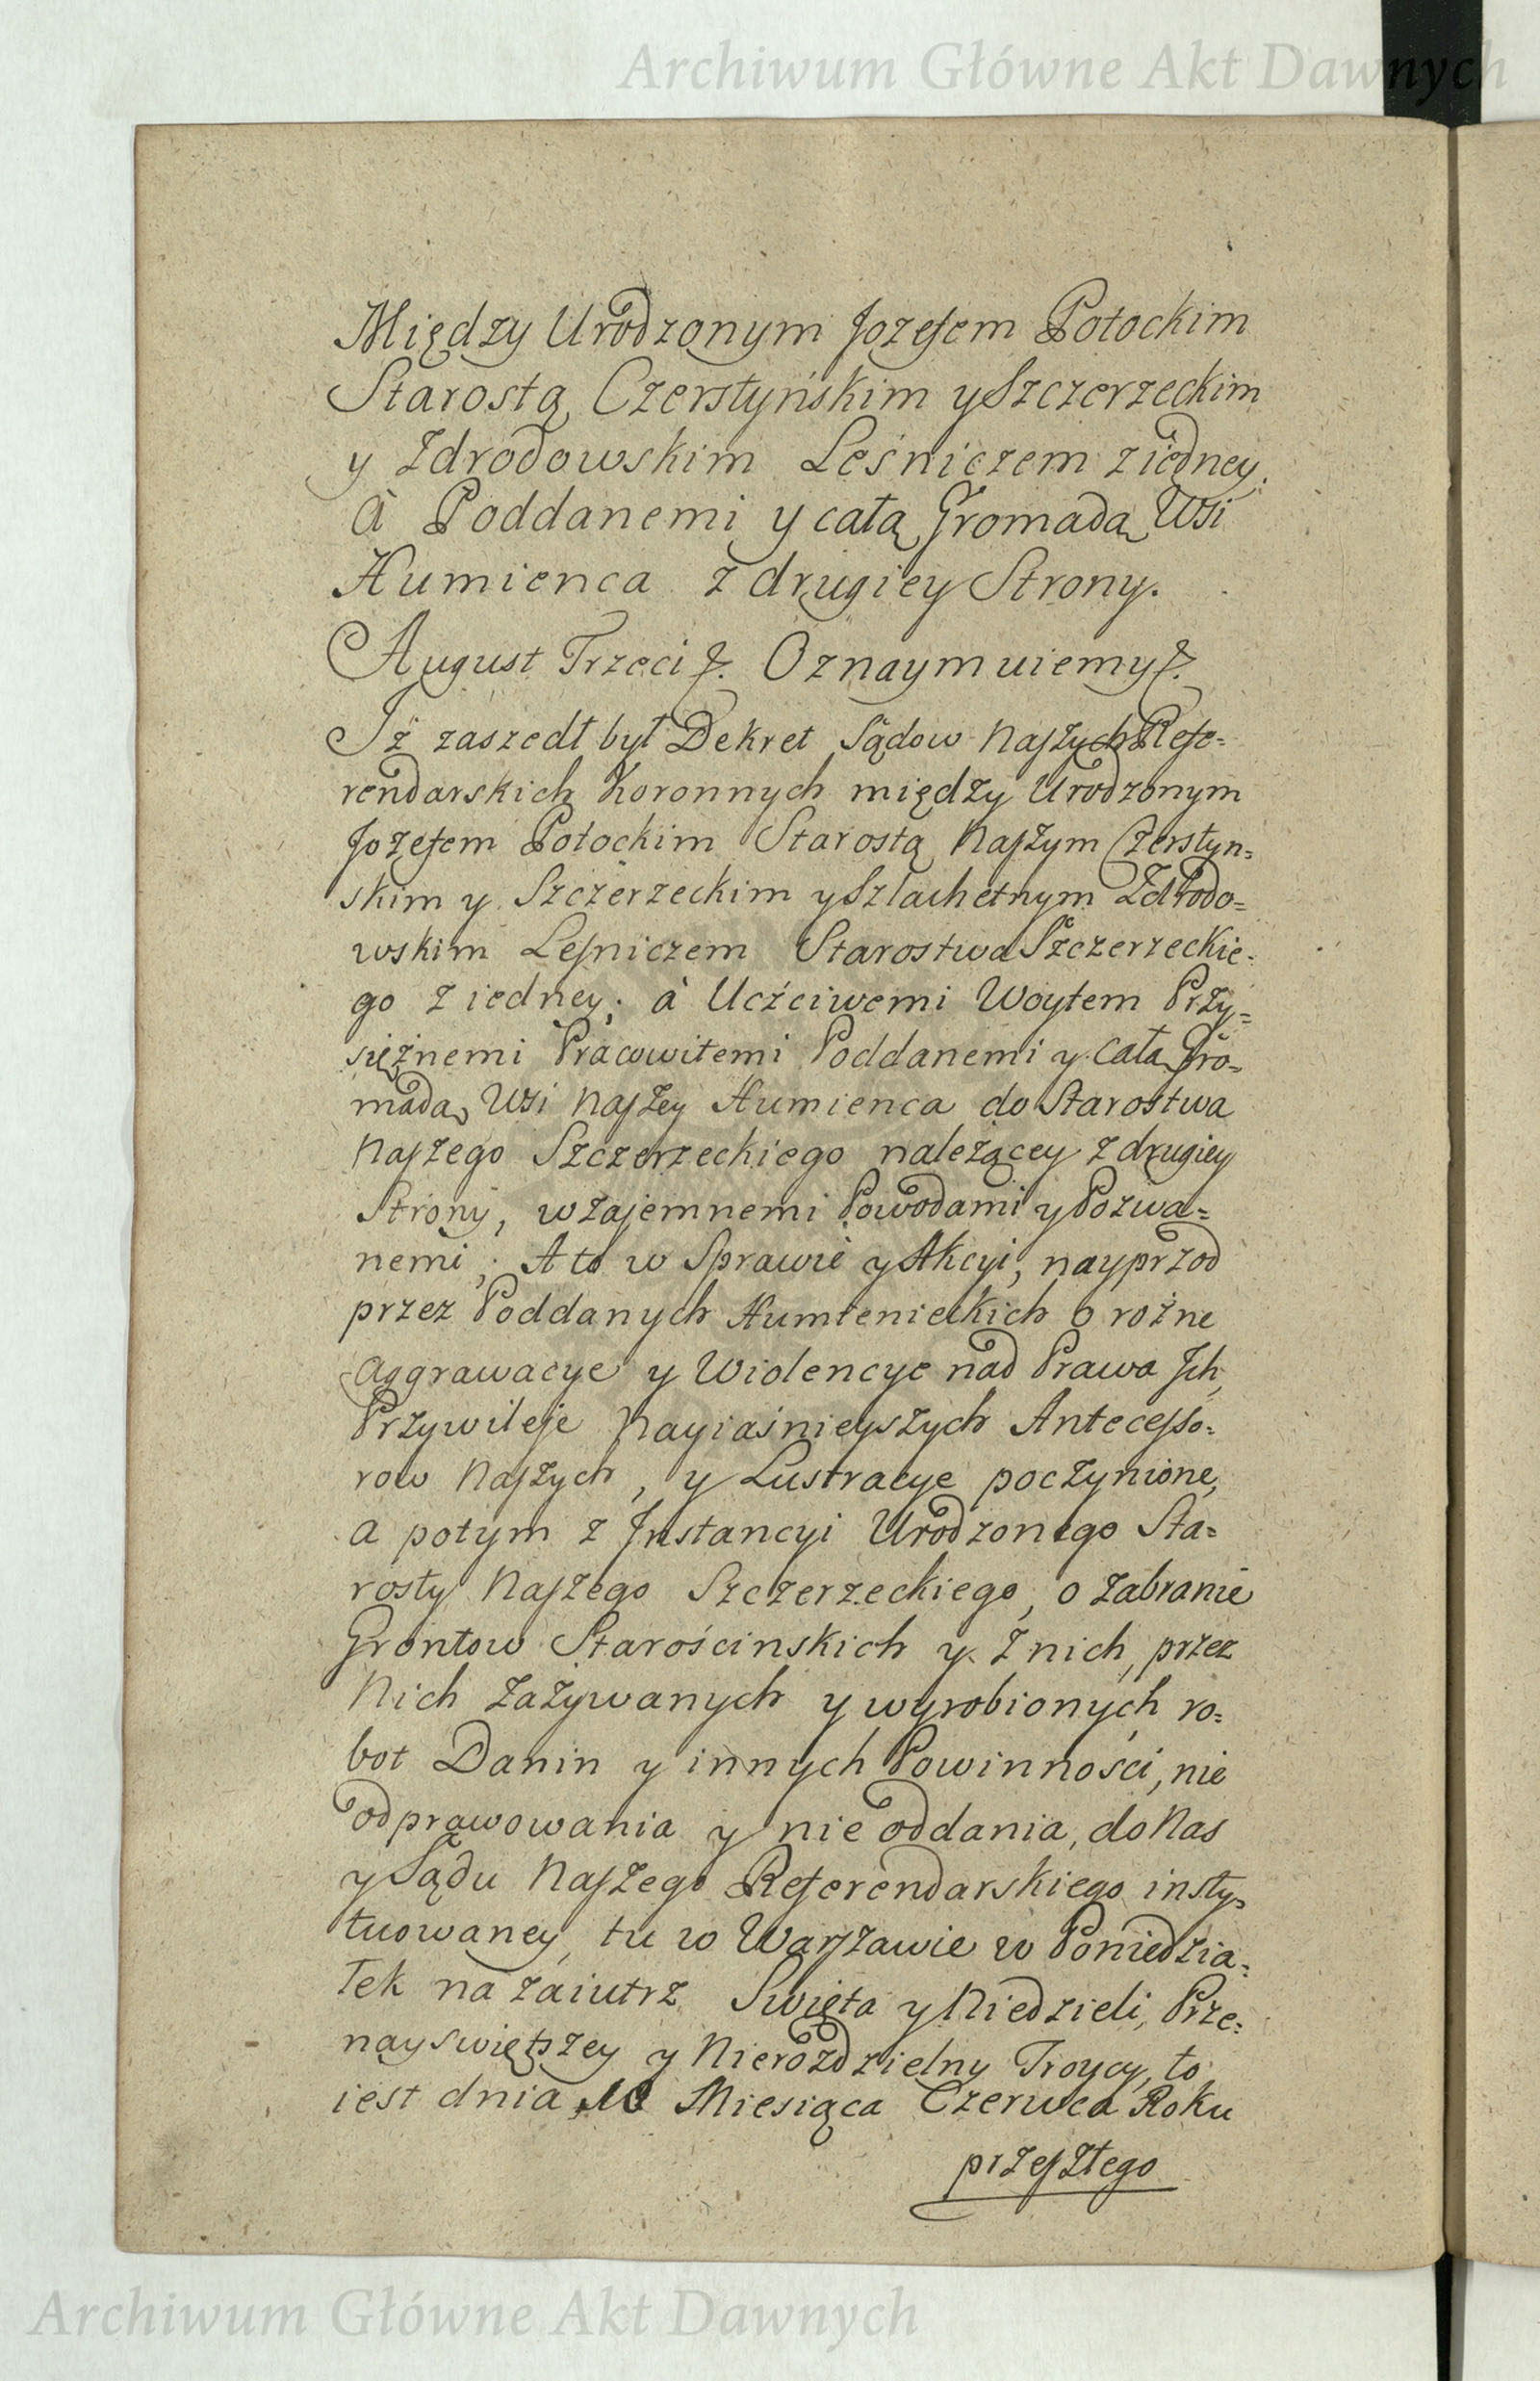 Archiwum Główne Akt Dawnych
Między Urodzonym Jozefem Potockim
Starostą Czerstyńskim y Szczerzeckim
y Zdrodowskim Leśniczem z iedney,
à Poddanemi y całą Gromadą Wsi
Humienca z drugiey Strony.
August Trzeci &. Oznaymuiemy &.
Iż zaszedł był Dekret Sądow Naszych Refe=
rendarskich Koronnych między Urodzonym
Jozefem Potockim Starostą Naszym Czerstyn=
skim y Szczerzeckim y Szlachetnym Zdrodo=
wskim Leśniczem Starostwa Szczerzeckie=
go z iedney; à Uczciwemi Woytem Przy=
siężnemi Pracowitemi Poddanemi y całą Gro=
madą Wsi Naszey Humienca do Starostwa
Naszego Szczerzeckiego należącey z drugiey
Strony, wzajemnemi Powodami y Pozwa=
nemi; A to w Sprawie y Akcyi, nayprzod
przez Poddanych Humienieckich o rożne
Aggrawacye y Wiolencye nad Prawa Ich,
Przywileje Nayiaśnieyszych Antecesso=
row Naszych, y Lustracye poczynione,
a potym z Instancyi Urodzonego Sta=
rosty Naszego Szczerzeckiego, o zabranie
Grontow Starościnskich y z nich, przez
Nich zażywanych y wyrobionych ro=
bot Danin y innych Powinności, nie
odprawowania y nie oddania, do Nas
y Sądu Naszego Referendarskiego insty=
tuowaney, tu w Warszawie w Poniedzia=
łek na zaiutrz Swięta y Niedzieli, Prze=
nayswiętszey y Nierozdzielny Troycy, to
iest dnia 10 Miesiąca Czerwca Roku
przeszłego
Archiwum Główne Akt Dawnych